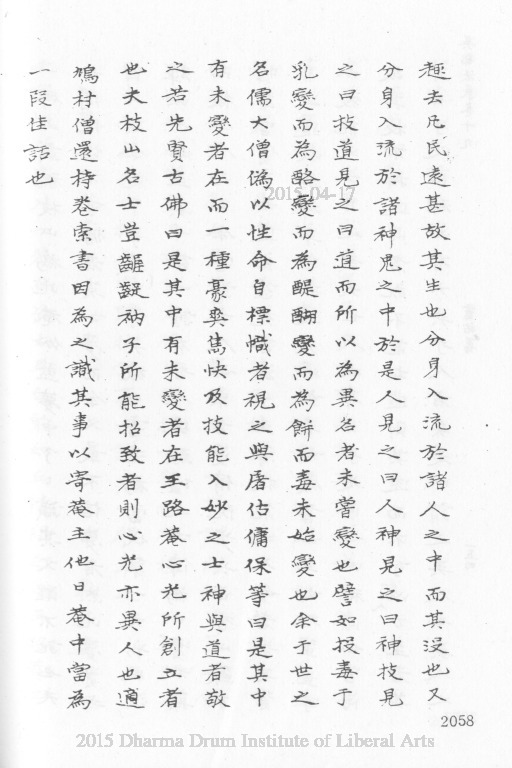 趣去凡民遠甚故其生也分身入流於諸人之中而其沒也又
分身入流於諸神鬼之中於是人見之曰人神見之曰神技見
之曰技道見之曰道而所以為異名者未嘗變也譬如投毒于
乳變而為酪變而為醍醐變而為餅而毒未始變也余于世之
名儒大僧偽以性命自標幟者視之與屠估傭保等曰是其中
有未變者在而一種豪爽雋快及技能入妙之士神與道者敬
之若先賢古佛曰是其中有未變者在王路菴心光所創立者
也夫枝山名士豈齷齪衲子所能招致者則心光亦異人也適
鴆村僧還持卷索書因為之識其事以寄菴主他日菴中當為
一段佳話也
2015-04-17
2058
2015 Dharma Drum Institute of Liberal Arts